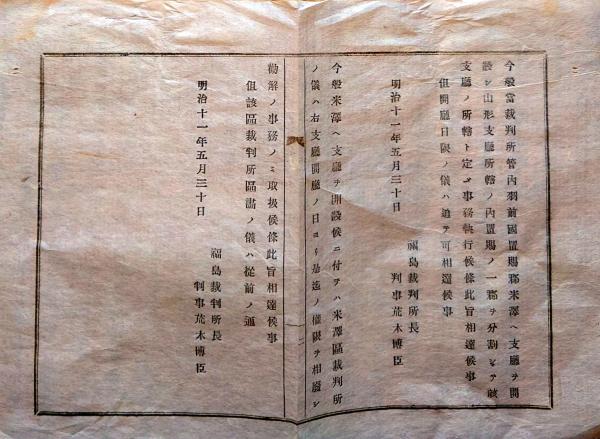 今般當裁判所管內羽前國置賜郡米澤ヘ支廳ヲ開
設シ山形支廳所轄ノ內置賜ノ一郡ヲ分割シテ該
支廳ノ所轄ト定メ事務執行候條此旨相達候事
但開廳日限ノ儀ハ追テ可相達候事
明治十一年五月三十日
福島裁判所長
判事荒木博臣
今般米澤ヘ支廳ヲ開設候ニ付テハ米澤區裁判所
ノ儀ハ右支廳開廳ノ日ヨリ是迄ノ權限ヲ相廢シ
勸解ノ事務ノミ取扱候條此旨相達候事
但該區裁判所區畫ノ儀ハ從前ノ通
明治十一年五月三十日
福島裁判所長
判事荒木博臣